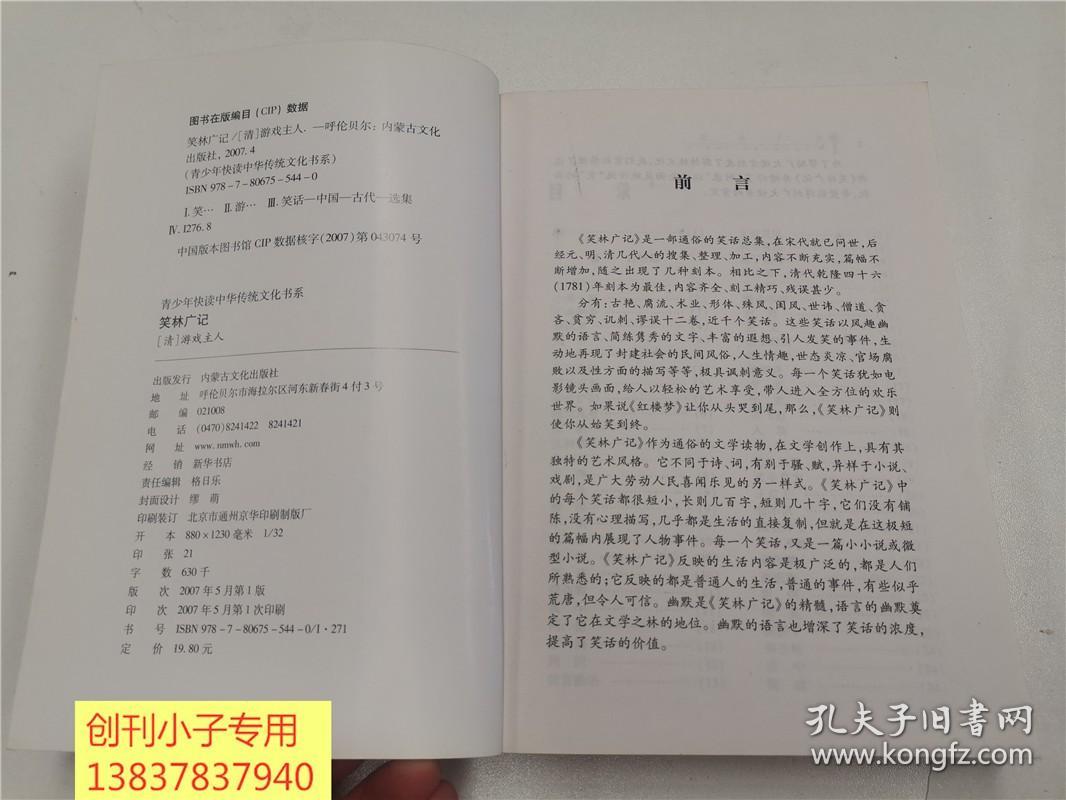 图书在版编目(CIP)数据
笑林广记/[清]游戏主人.—呼伦贝尔:内蒙古文化
出版社,2007.4
(青少年快读中华传统文化书系)
ISBN 978-7-80675-544-0
Ⅰ.笑… Ⅱ.游… Ⅲ.笑话—中国—古代—选集
Ⅳ.I276.8
中国版本图书馆CIP数据核字(2007)第043074号
青少年快读中华传统文化书系
笑林广记
[清]游戏主人
出版发行 内蒙古文化出版社
地 址 呼伦贝尔市海拉尔区河东新春街4付3号
邮 编 021008
电 话 (0470)8241422 8241421
网 址 www.nmwh.com
经 销 新华书店
责任编辑 格日乐
封面设计 缪 萌
印刷装订 北京市通州京华印刷制版厂
开 本 880×1230毫米 1/32
印 张 21
字 数 630千
版 次 2007年5月第1版
印 次 2007年5月第1次印刷
书 号 ISBN 978-7-80675-544-0/I·271
定 价 19.80元
前 言
《笑林广记》是一部通俗的笑话总集,在宋代就已问世,后
经元、明、清几代人的搜集、整理、加工,内容不断充实,篇幅不
断增加,随之出现了几种刻本。相比之下,清代乾隆四十六
(1781)年刻本为最佳,内容齐全、刻工精巧、残误甚少。
分有:古艳、腐流、术业、形体、殊风、闺风、世讳、僧道、贪
吝、贫穷、讥刺、谬误十二卷,近千个笑话。这些笑话以风趣幽
默的语言、简练隽秀的文字、丰富的遐想、引人发笑的事件,生
动地再现了封建社会的民间风俗,人生情趣,世态炎凉、官场腐
败以及性方面的描写等等,极具讽刺意义。每一个笑话犹如电
影镜头画面,给人以轻松的艺术享受,带人进入全方位的欢乐
世界。如果说《红楼梦》让你从头哭到尾,那么,《笑林广记》则
使你从始笑到终。
《笑林广记》作为通俗的文学读物,在文学创作上,具有其
独特的艺术风格。它不同于诗、词,有别于骚、赋,异样于小说、
戏剧,是广大劳动人民喜闻乐见的另一样式。《笑林广记》中
的每个笑话都很短小,长则几百字,短则几十字,它们没有铺
陈,没有心理描写,几乎都是生活的直接复制,但就是在这极短
的篇幅内展现了人物事件。每一个笑话,又是一篇小小说或微
型小说。《笑林广记》反映的生活内容是极广泛的,都是人们
所熟悉的;它反映的都是普通人的生活,普通的事件,有些似乎
荒唐,但令人可信。幽默是《笑林广记》的精髓,语言的幽默奠
定了它在文学之林的地位。幽默的语言也增深了笑话的浓度,
提高了笑话的价值。
创刊小子专用
13837837940
孔夫子旧书网
www.kongfz.com